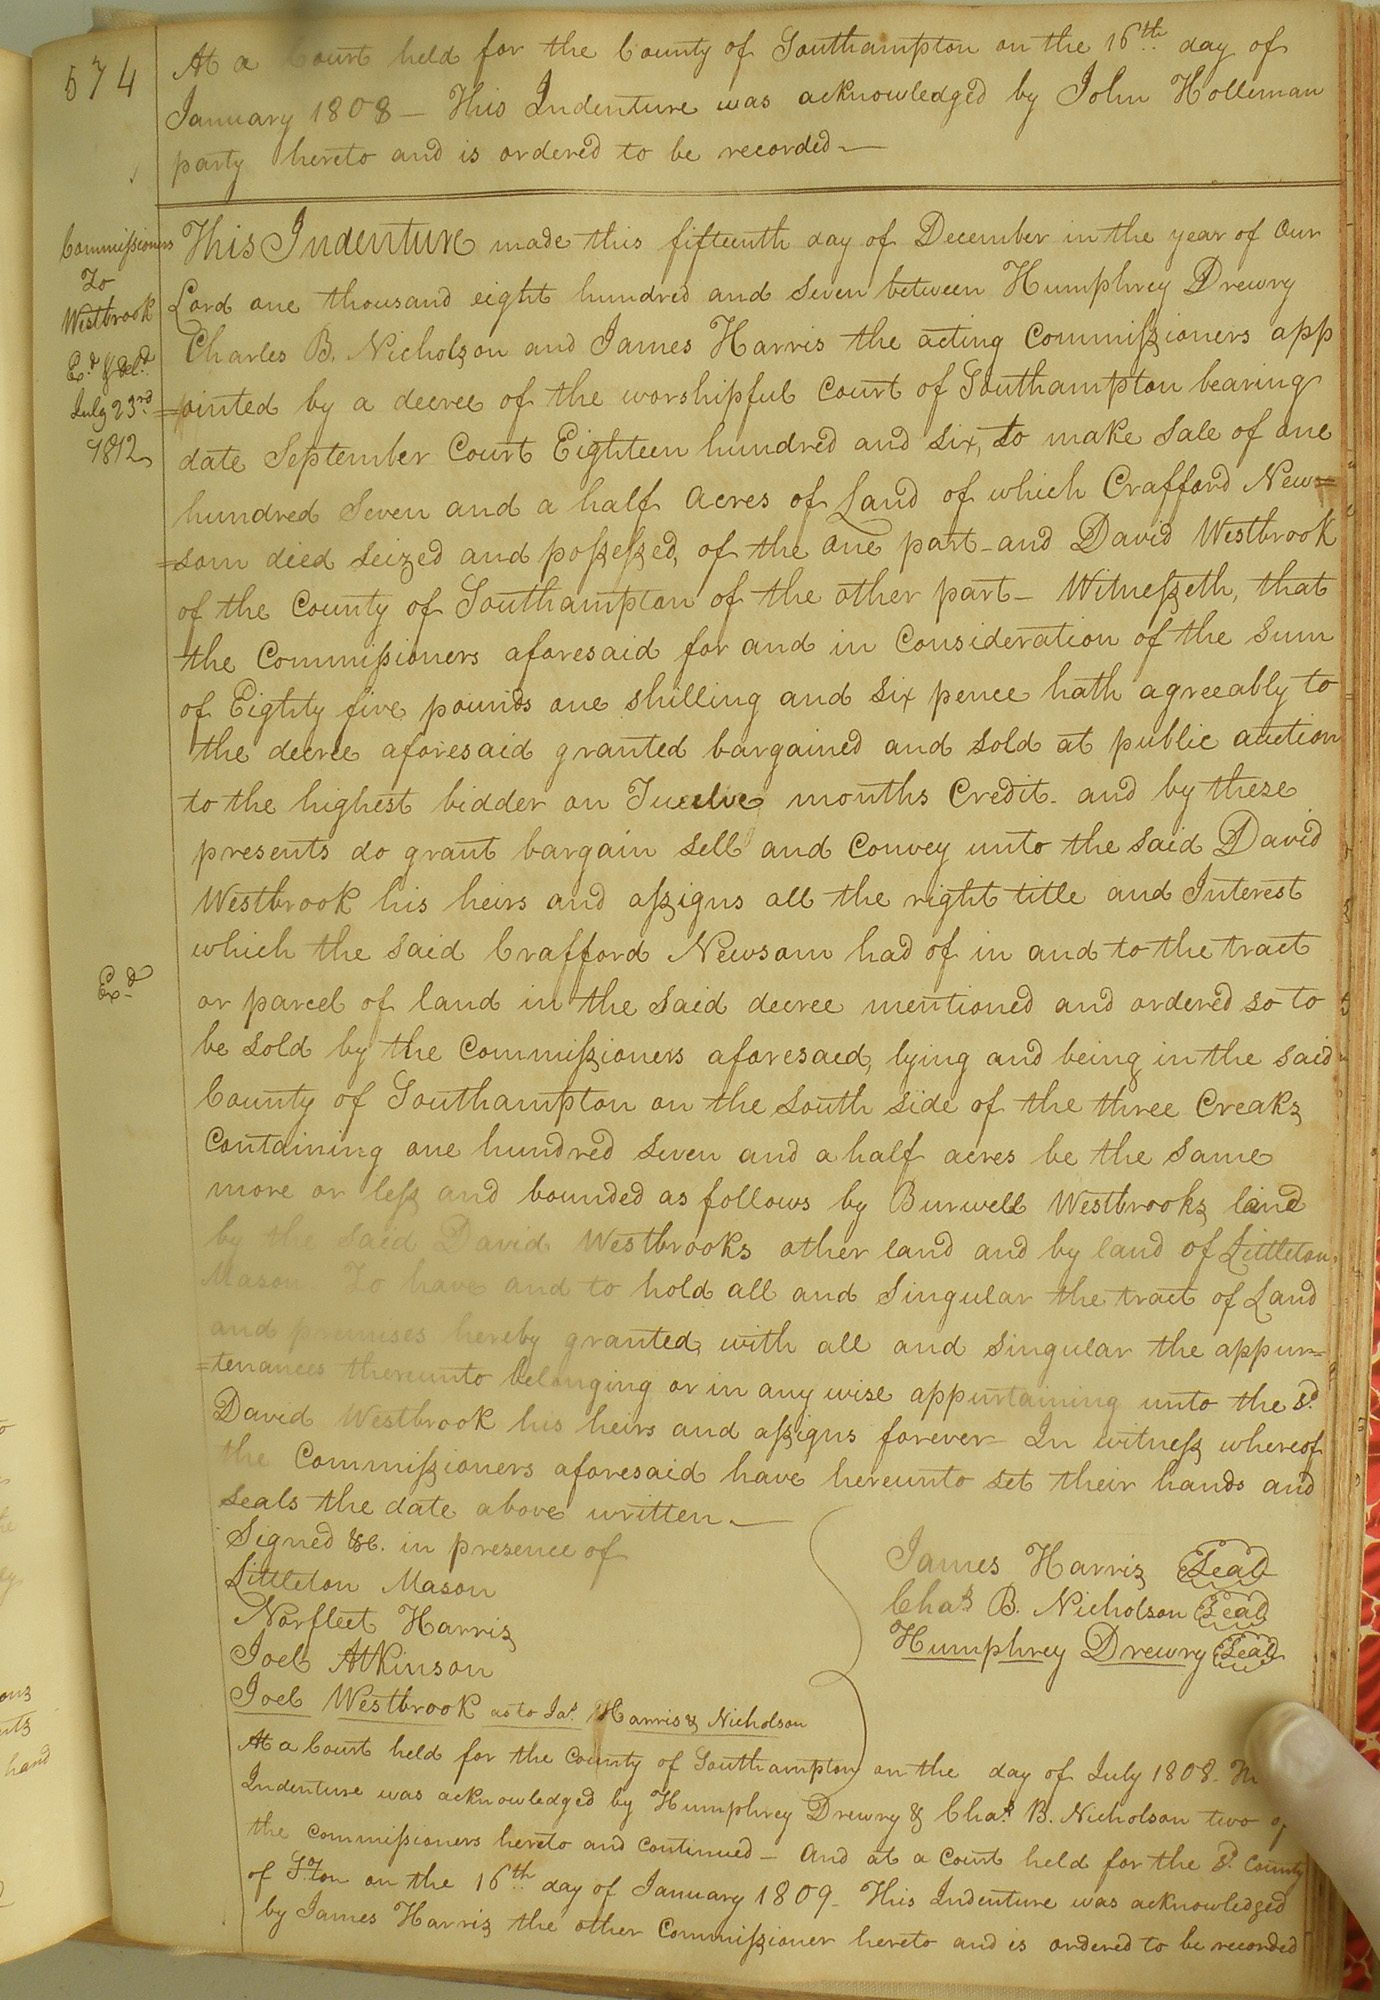 574
At a Court held for the County of Southampton on the 16th day of
January 1808 — This Indenture was acknowledged by John Holleman
party hereto and is ordered to be recorded —
Commissioners
To
Westbrook
Exd & deld
July 23rd
1812
This Indenture made this fifteenth day of December in the year of Our
Lord one thousand eight hundred and seven between Humphrey Drewry
Charles B. Nicholson and James Harris the acting Commissioners app
=ointed by a decree of the worshipful Court of Southampton bearing
date September Court Eighteen hundred and six, to make Sale of one
hundred Seven and a half acres of Land of which Crafford News=
=som died seized and possessed, of the one part - and David Westbrook
of the County of Southampton of the other part - Witnesseth, that
the Commissioners aforesaid for and in Consideration of the Sum
of Eighty five pounds one shilling and six pence hath agreeably to
the decree aforesaid granted bargained and sold at public auction
to the highest bidder on Twelve months Credit - and by these
presents do grant bargain sell and Convey unto the said David
Westbrook his heirs and assigns all the right title and Interest
which the said Crafford Newsom had of in and to the tract
Exd
or parcel of land in the said decree mentioned and ordered so to
be sold by the Commissioners aforesaed, lying and being in the said
County of Southampton on the south side of the three Creaks
Containing one hundred seven and a half acres be the same
more or less and bounded as follows by Burwell Westbrooks land
by the said David Westbrooks other land and by land of Littleton
Mason To have and to hold all and Singular the tract of Land
and premises hereby granted, with all and singular the appur=
=tenances thereunto belonging or in any wise appurtaining unto the sd
David Westbrook his heirs and assigns forever - In witness whereof
the Commissioners aforesaid have hereunto set their hands and
seals the date above written —
Signed &c. in presence of
Littleton Mason
Norfleet Harris
Joel Atkinson
Joel Westbrook as to Jas Harris & Nicholson
James Harris Seal
Chas B. Nicholson Seal
Humphrey Drewry Seal
At a Court held for the County of Southampton on the day of July 1808 -
Indenture was acknowledged by Humphrey Drewry & Chas B. Nicholson two of
the commissioners hereto and continued - And at a Court held for the sd County
of S.ton on the 16th day of January 1809 - This Indenture was acknowledged
by James Harris the other Commissioner hereto and is ordered to be recorded